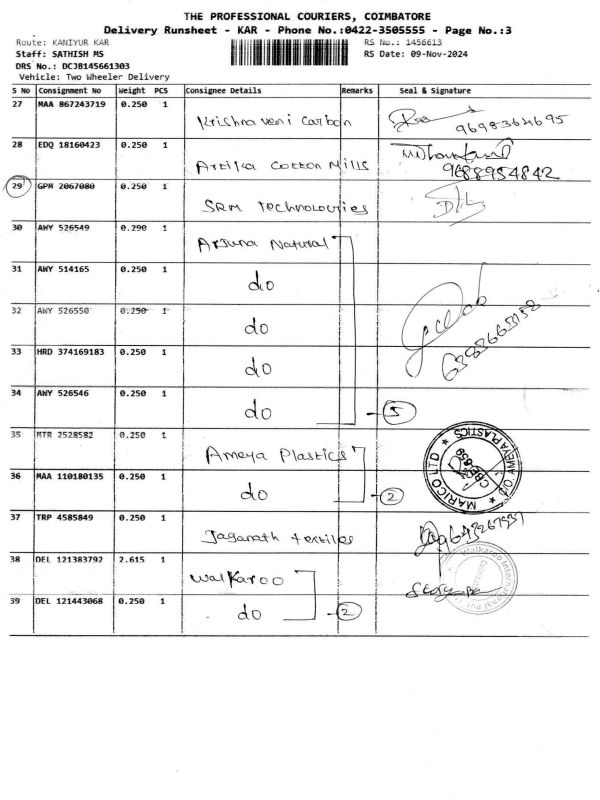 THE PROFESSIONAL COURIERS, COIMBATORE
Delivery Runsheet - KAR - Phone No.:0422-3505555 - Page No.:3
Route: KANIYUR KAR RS No.: 1456613
Staff: SATHISH MS RS Date: 09-Nov-2024
DRS No.: DCJB145661303
Vehicle: Two Wheeler Delivery
S No Consignment No Weight PCS Consignee Details Remarks Seal & Signature
27 MAA 867243719 0.250 1 Krishnaveni Carbon 9698364695
28 EDQ 18160423 0.250 1 Artika Cotton Mills 9688954842
29 GPM 2067080 0.250 1 SRM Technologies
30 AWY 526549 0.290 1 Arjuna Natural
31 AWY 514165 0.250 1 do
32 AWY 526550 0.250 1 do
33 HRD 374169183 0.250 1 do
34 AWY 526546 0.250 1 do 5
35 MTR 2528582 0.250 1 Ameya Plastics
MARICO LTD
36 MAA 110180135 0.250 1 do 2
37 TRP 4585849 0.250 1 Jaganath textiles
38 DEL 121383792 2.615 1 Walkaroo
Walkaroo International
39 DEL 121443068 0.250 1 do 2